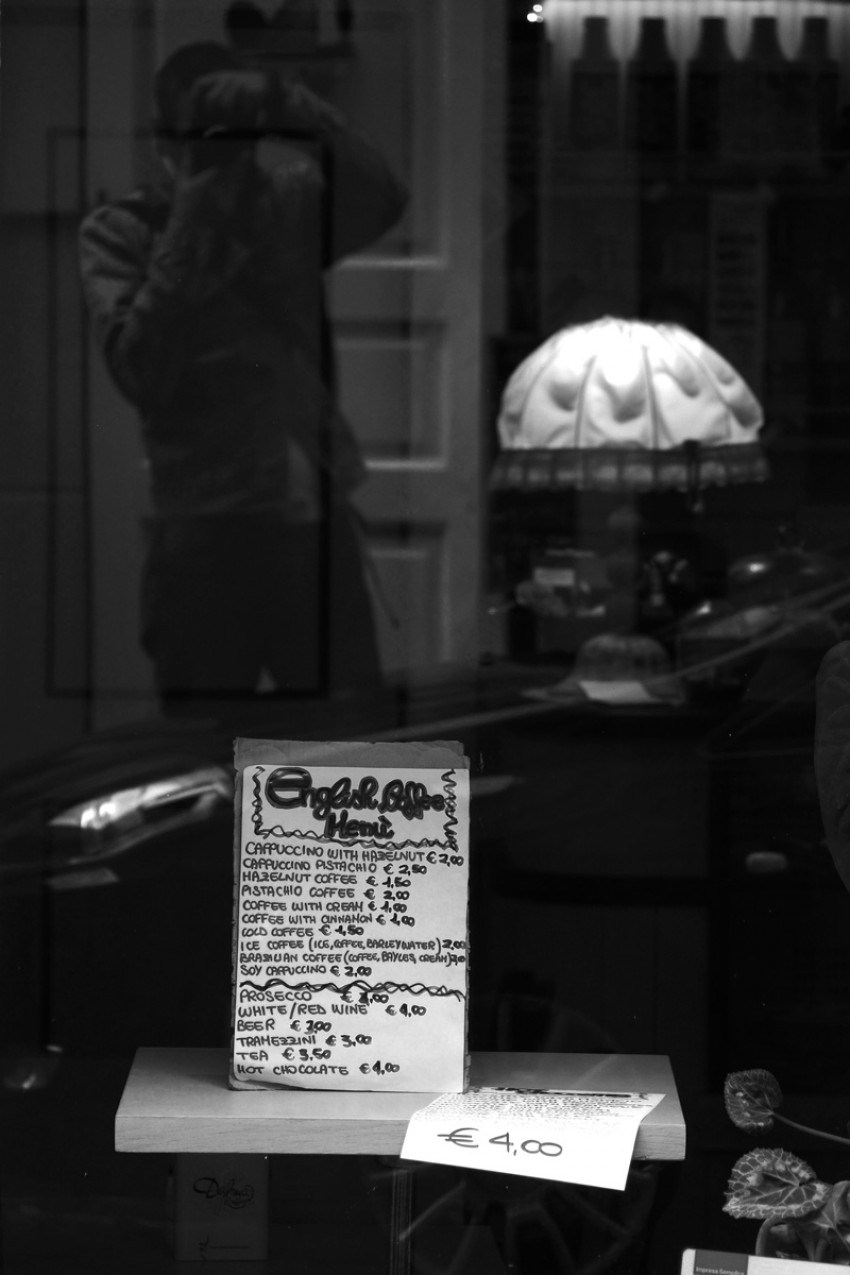 English Coffee
Menù
CAPPUCCINO WITH HAZELNUT € 2,00
CAPPUCCINO PISTACHIO € 2,50
HAZELNUT COFFEE € 1,50
PISTACHIO COFFEE € 2,00
COFFEE WITH CREAM € 1,00
COFFEE WITH CINNAMON € 1,00
COLD COFFEE € 1,50
ICE COFFEE (ICE, COFFEE, BARLEYWATER) 2,00
BRASILIAN COFFEE (COFFEE, BAYLES, CREAM)
SOY CAPPUCCINO € 2,00
PROSECCO €
WHITE/RED WINE € 4,00
BEER €
TRAMEZZINI € 3,00
TEA € 3,50
HOT CHOCOLATE € 4,00
€ 4,00